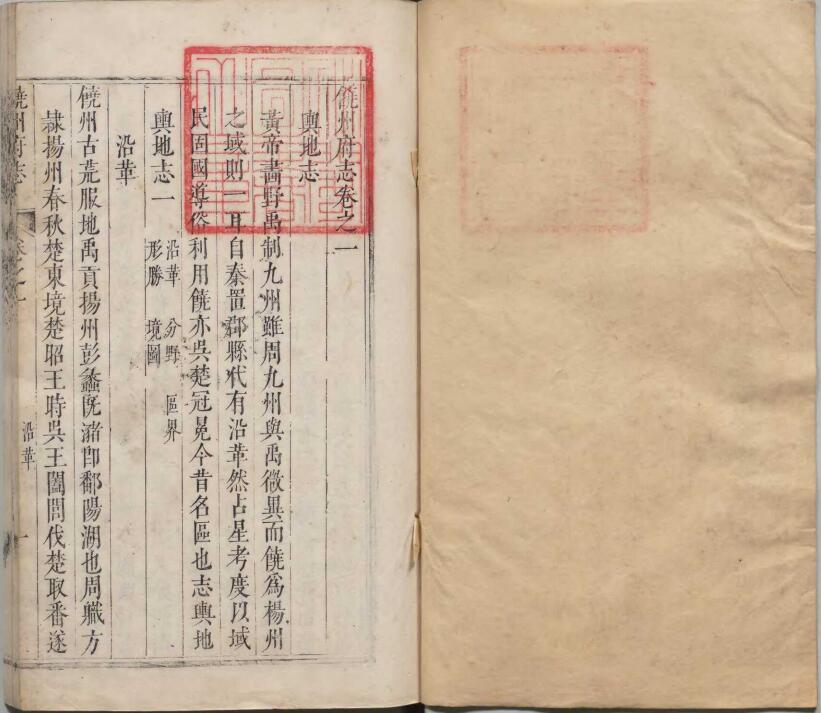 饒州府志卷之一
輿地志
黃帝畫野禹制九州雖周九州與禹微異而饒爲楊州
之域則一耳自秦置郡縣代有沿革然占星考度以域
民固國導俗利用饒亦吳楚冠冕今昔名區也志輿地
輿地志一
沿革 分野 區界
形勝 境圖
沿革
饒州古荒服地禹貢揚州彭蠡旣瀦卽鄱陽湖也周職方
隷揚州春秋楚東境楚昭王時吳王闔閭伐楚取番遂
饒州府志
卷之一
沿革
一